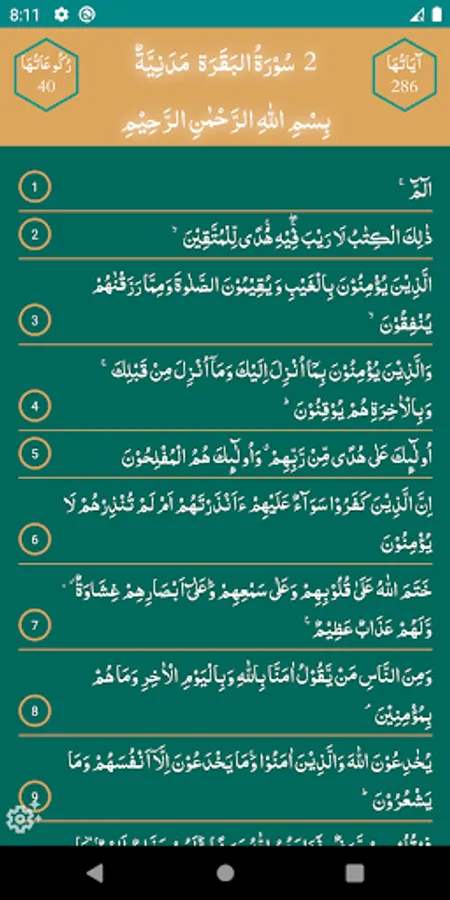 8:11
رُكُوْعَاتُهَا
40
2 سُوْرَةُ الْبَقَرَة مَدَنِيَّةٌ
آيَاتُهَا
286
بِسْمِ اللهِ الرَّحْمٰنِ الرَّحِيْمِ
الٓمّٓ ۚ
1
ذٰلِكَ الْكِتٰبُ لَا رَيْبَ ۛ فِيْهِ ۛ هُدًى لِّلْمُتَّقِيْنَ ۙ
2
الَّذِيْنَ يُؤْمِنُوْنَ بِالْغَيْبِ وَيُقِيْمُوْنَ الصَّلٰوةَ وَمِمَّا رَزَقْنٰهُمْ
يُنْفِقُوْنَ ۙ
3
وَالَّذِيْنَ يُؤْمِنُوْنَ بِمَآ اُنْزِلَ اِلَيْكَ وَمَآ اُنْزِلَ مِنْ قَبْلِكَ ۚ
وَبِالْاٰخِرَةِ هُمْ يُوْقِنُوْنَ ؕ
4
اُولٰٓئِكَ عَلٰى هُدًى مِّنْ رَّبِّهِمْ ۙ وَاُولٰٓئِكَ هُمُ الْمُفْلِحُوْنَ
5
اِنَّ الَّذِيْنَ كَفَرُوْا سَوَآءٌ عَلَيْهِمْ ءَاَنْذَرْتَهُمْ اَمْ لَمْ تُنْذِرْهُمْ لَا
يُؤْمِنُوْنَ
6
خَتَمَ اللهُ عَلٰى قُلُوْبِهِمْ وَعَلٰى سَمْعِهِمْ ؕ وَعَلٰٓى اَبْصَارِهِمْ غِشَاوَةٌ ؗ
وَّلَهُمْ عَذَابٌ عَظِيْمٌ ۧ
7
وَمِنَ النَّاسِ مَنْ يَّقُوْلُ اٰمَنَّا بِاللهِ وَبِالْيَوْمِ الْاٰخِرِ وَمَا هُمْ
بِمُؤْمِنِيْنَ ۘ
8
يُخٰدِعُوْنَ اللهَ وَالَّذِيْنَ اٰمَنُوْا ۚ وَمَا يَخْدَعُوْنَ اِلَّآ اَنْفُسَهُمْ وَمَا
يَشْعُرُوْنَ ؕ
9